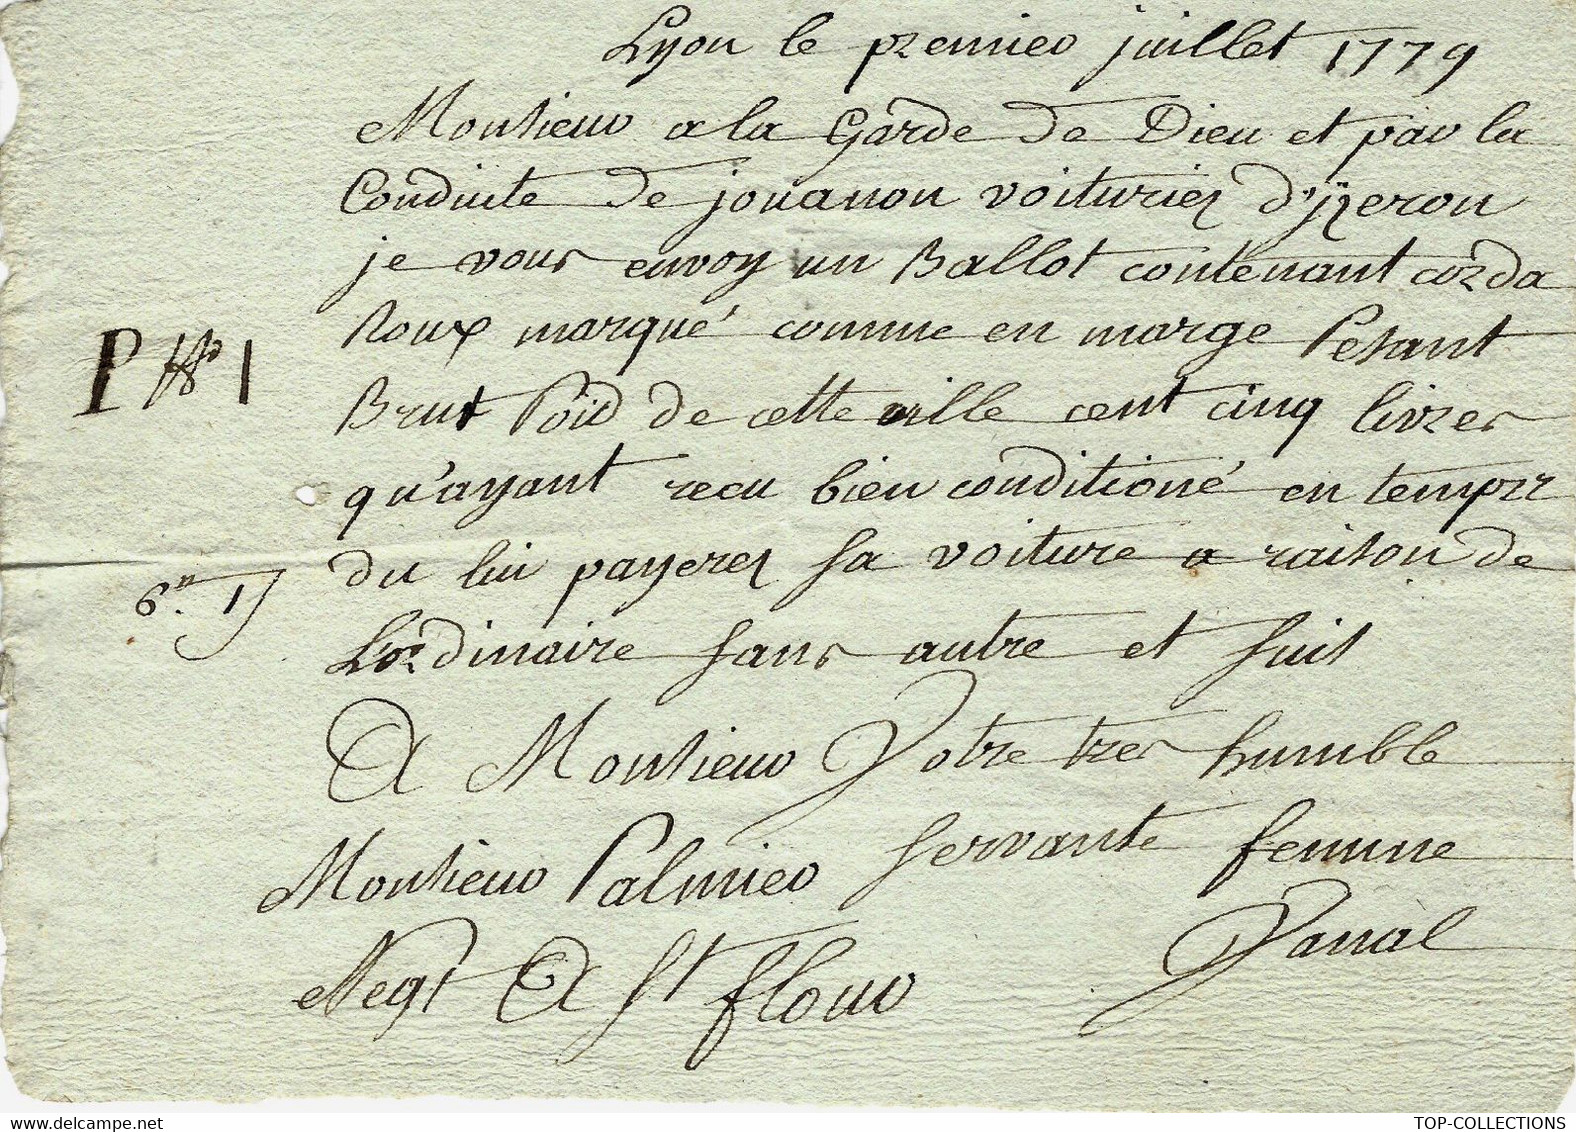 Lyon le premier juillet 1779
Monsieur a la Garde de Dieu et par la
Conduite de jouanon voiturier d'yzeron
je vous envoy un Ballot contenant corda
Roux marqué comme en marge Pesant
P No 1
Brut Poid de cette ville cent cinq livres
qu'ayant recu bien conditioné en temps
du lui payerez sa voiture a raison de
L'ordinaire sans autre et suis
A Monsieur Votre tres humble
Monsieur Palmier servante femme
Negt A St flour